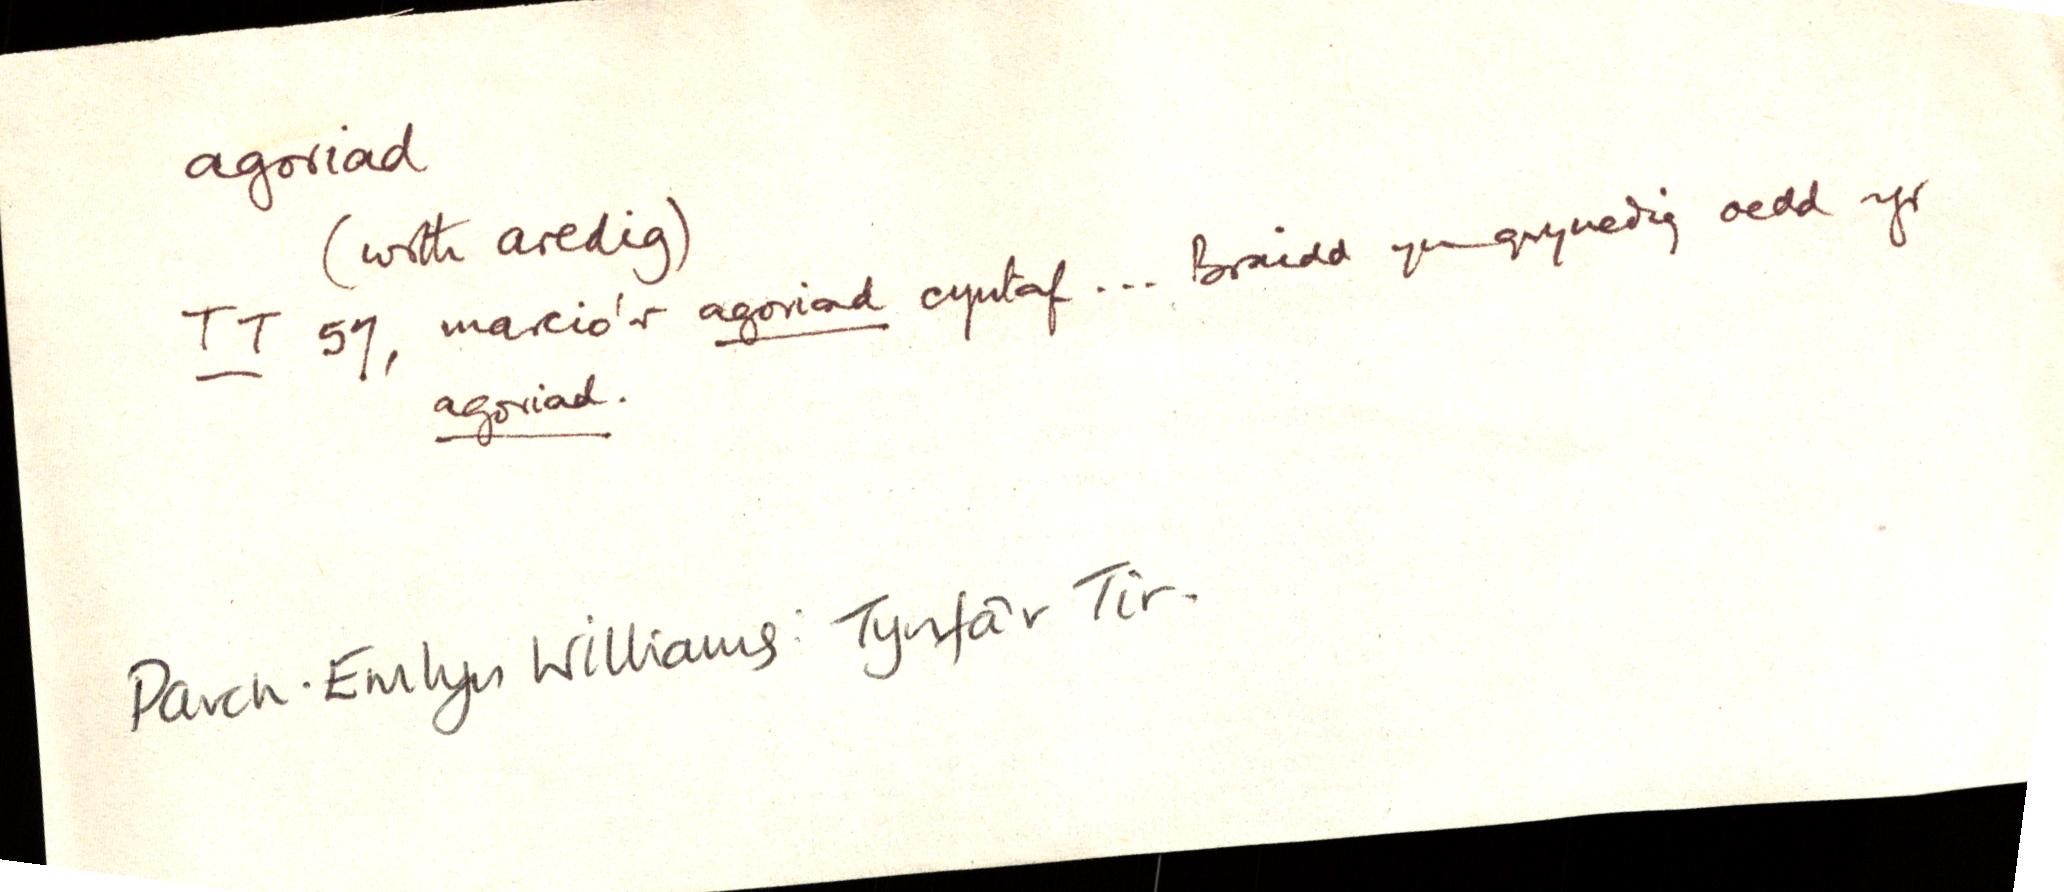 agoriad
(wrth aredig)
TT 57, marcio'r agoriad cyntaf ... Braidd yn grynedig oedd yr
agoriad.
Parch. Emlyn Williams: Tynfa'r Tir.